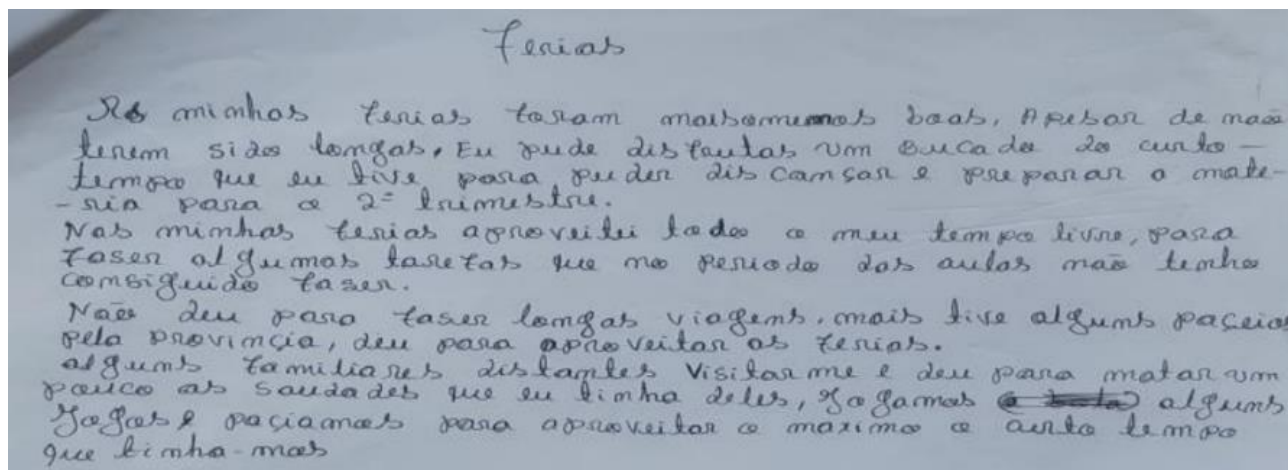 Ferias
As minhas ferias foram maisomenos boas, Apesar de não
terem sido longas, Eu pude disfrutas um bucado do curto-
tempo que eu tive para puder discansar e preparar a mate-
-ria para o 2º trimestre.
Nas minhas ferias aproveitei todo o meu tempo livre, para
faser algumas tarefas que no periodo das aulas não tenho
consiguido faser.
Não deu para faser longas viagens, mais tive alguns paçeios
pela provinçia, deu para aproveitar as ferias.
alguns familiares distantes visitarme e deu para matar um
pouco as saudades que eu tinha deles, Jogamos alguns
Jogos e paçiamos para aproveitar o maximo o curto tempo
que tinha-mos